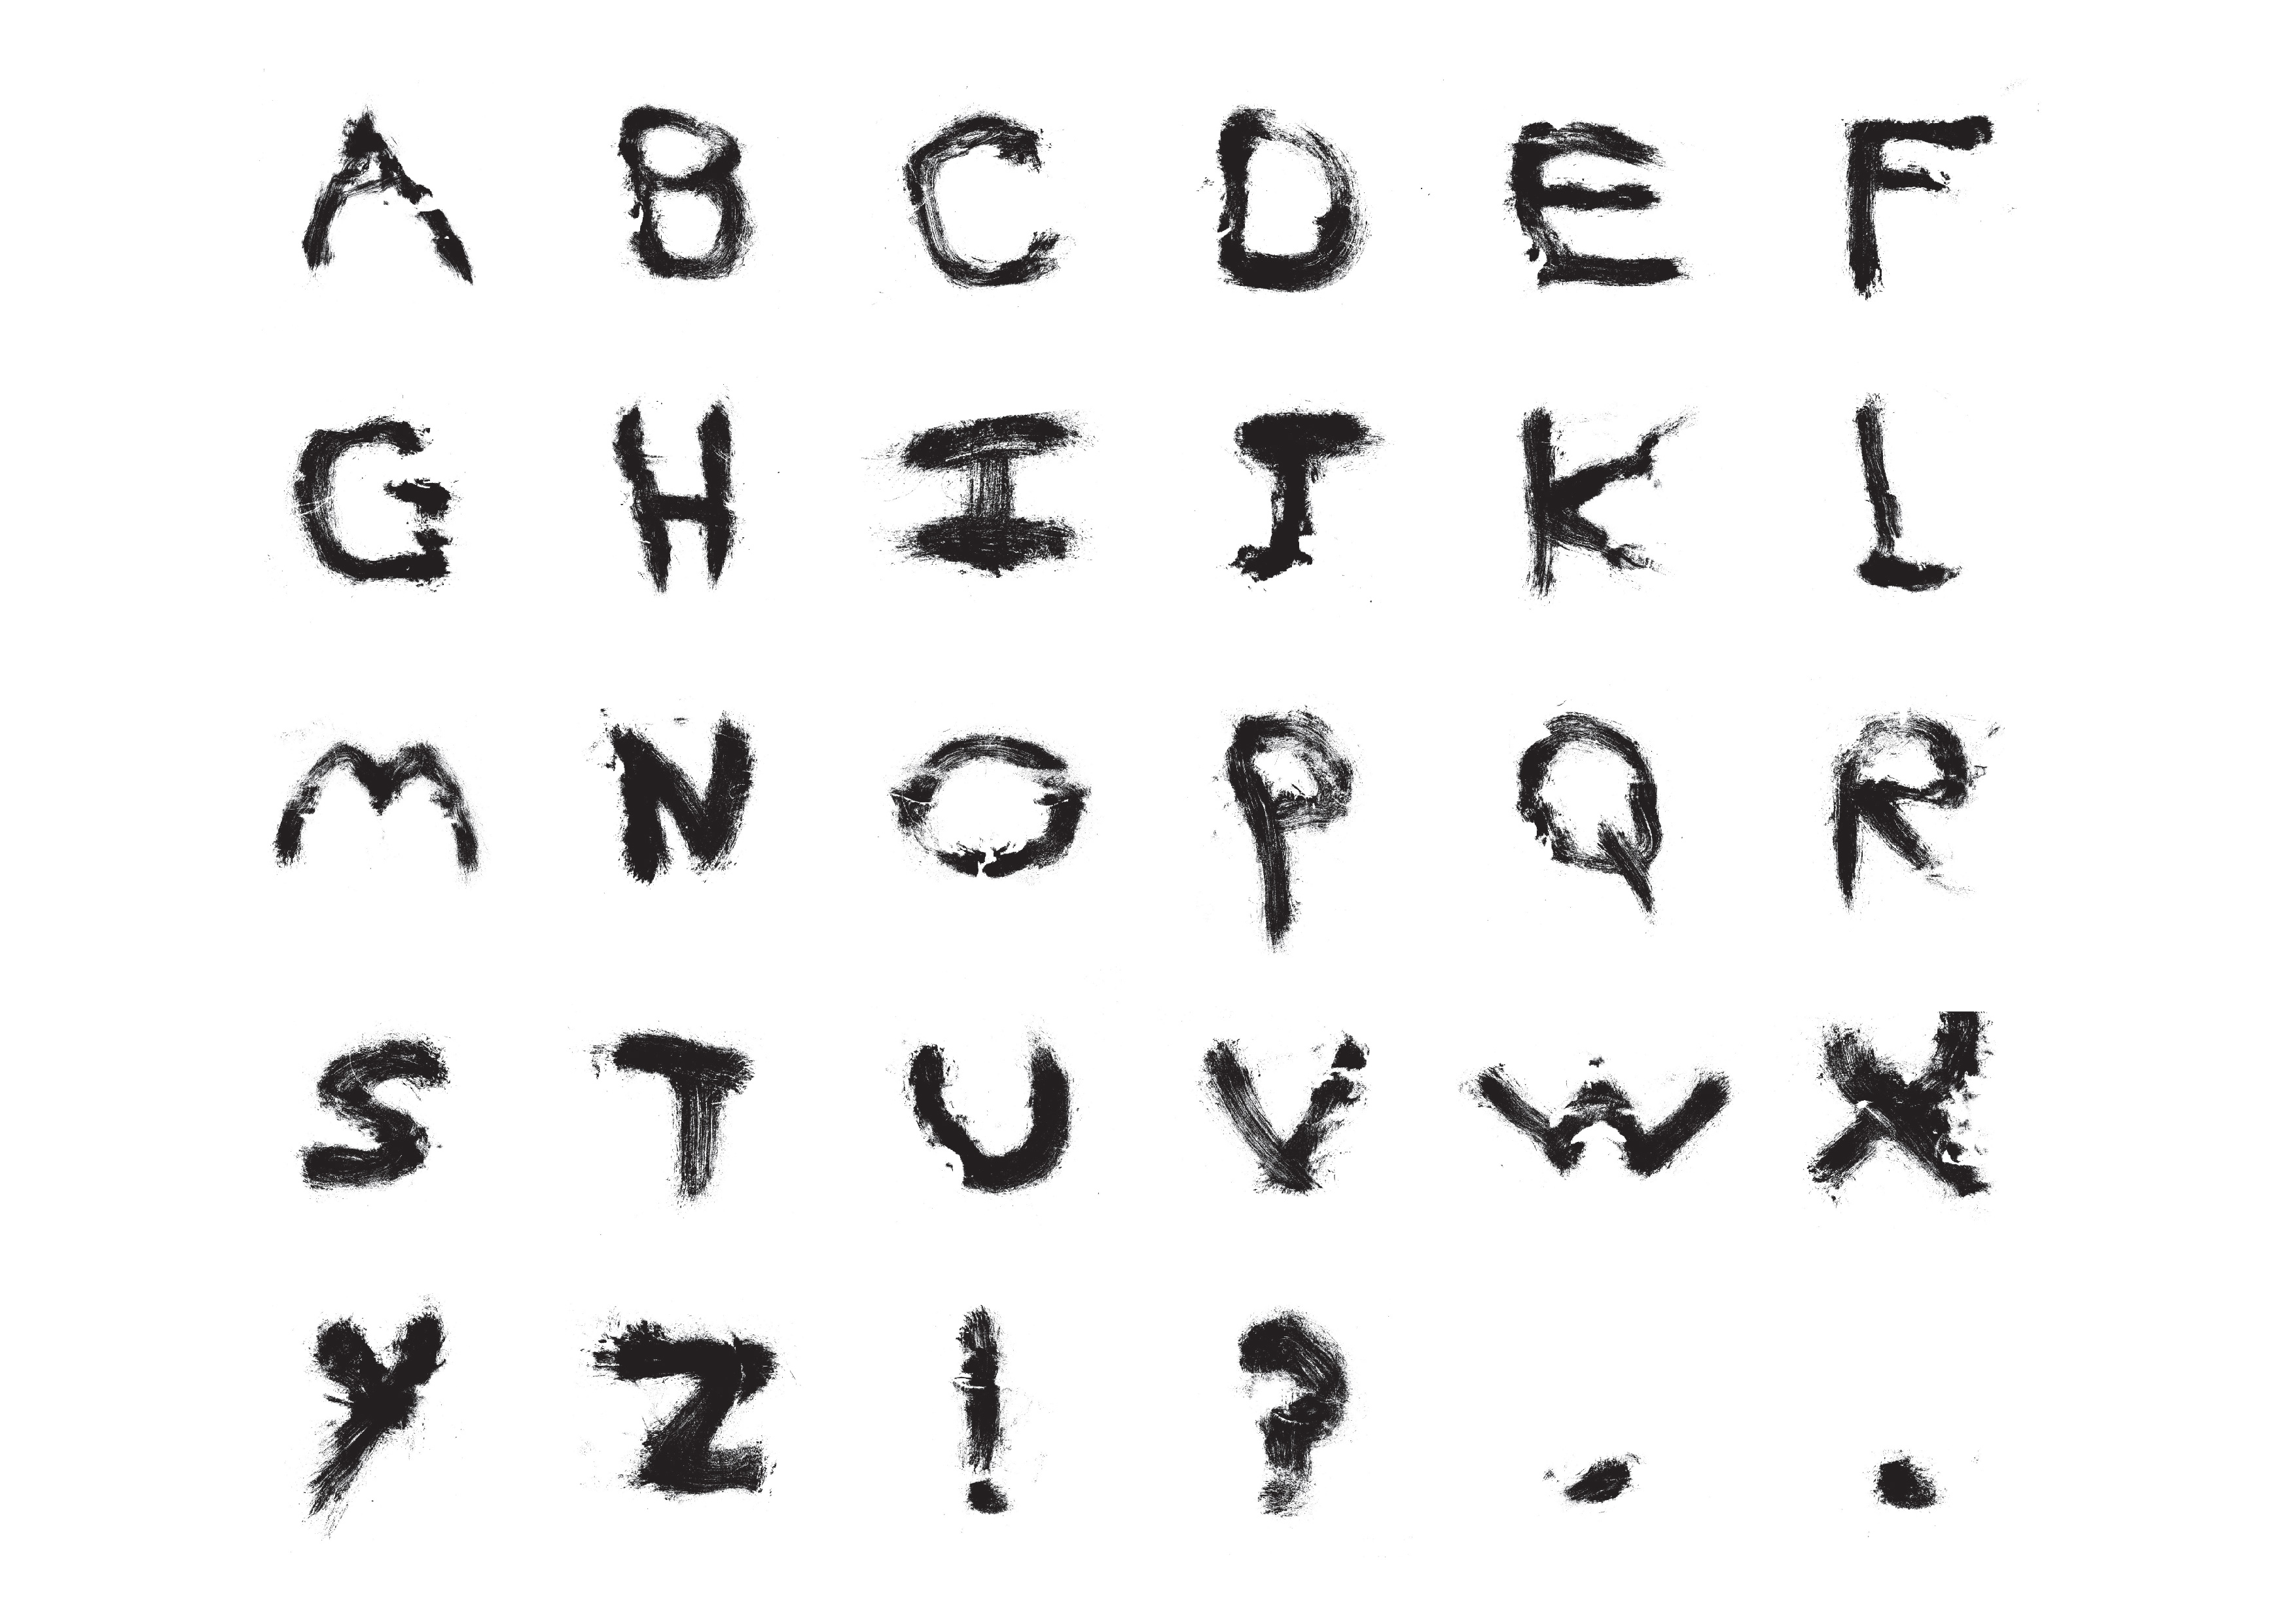 A B C D E F
G H I J K L
M N O P Q R
S T U V W X
Y Z ! ? , .